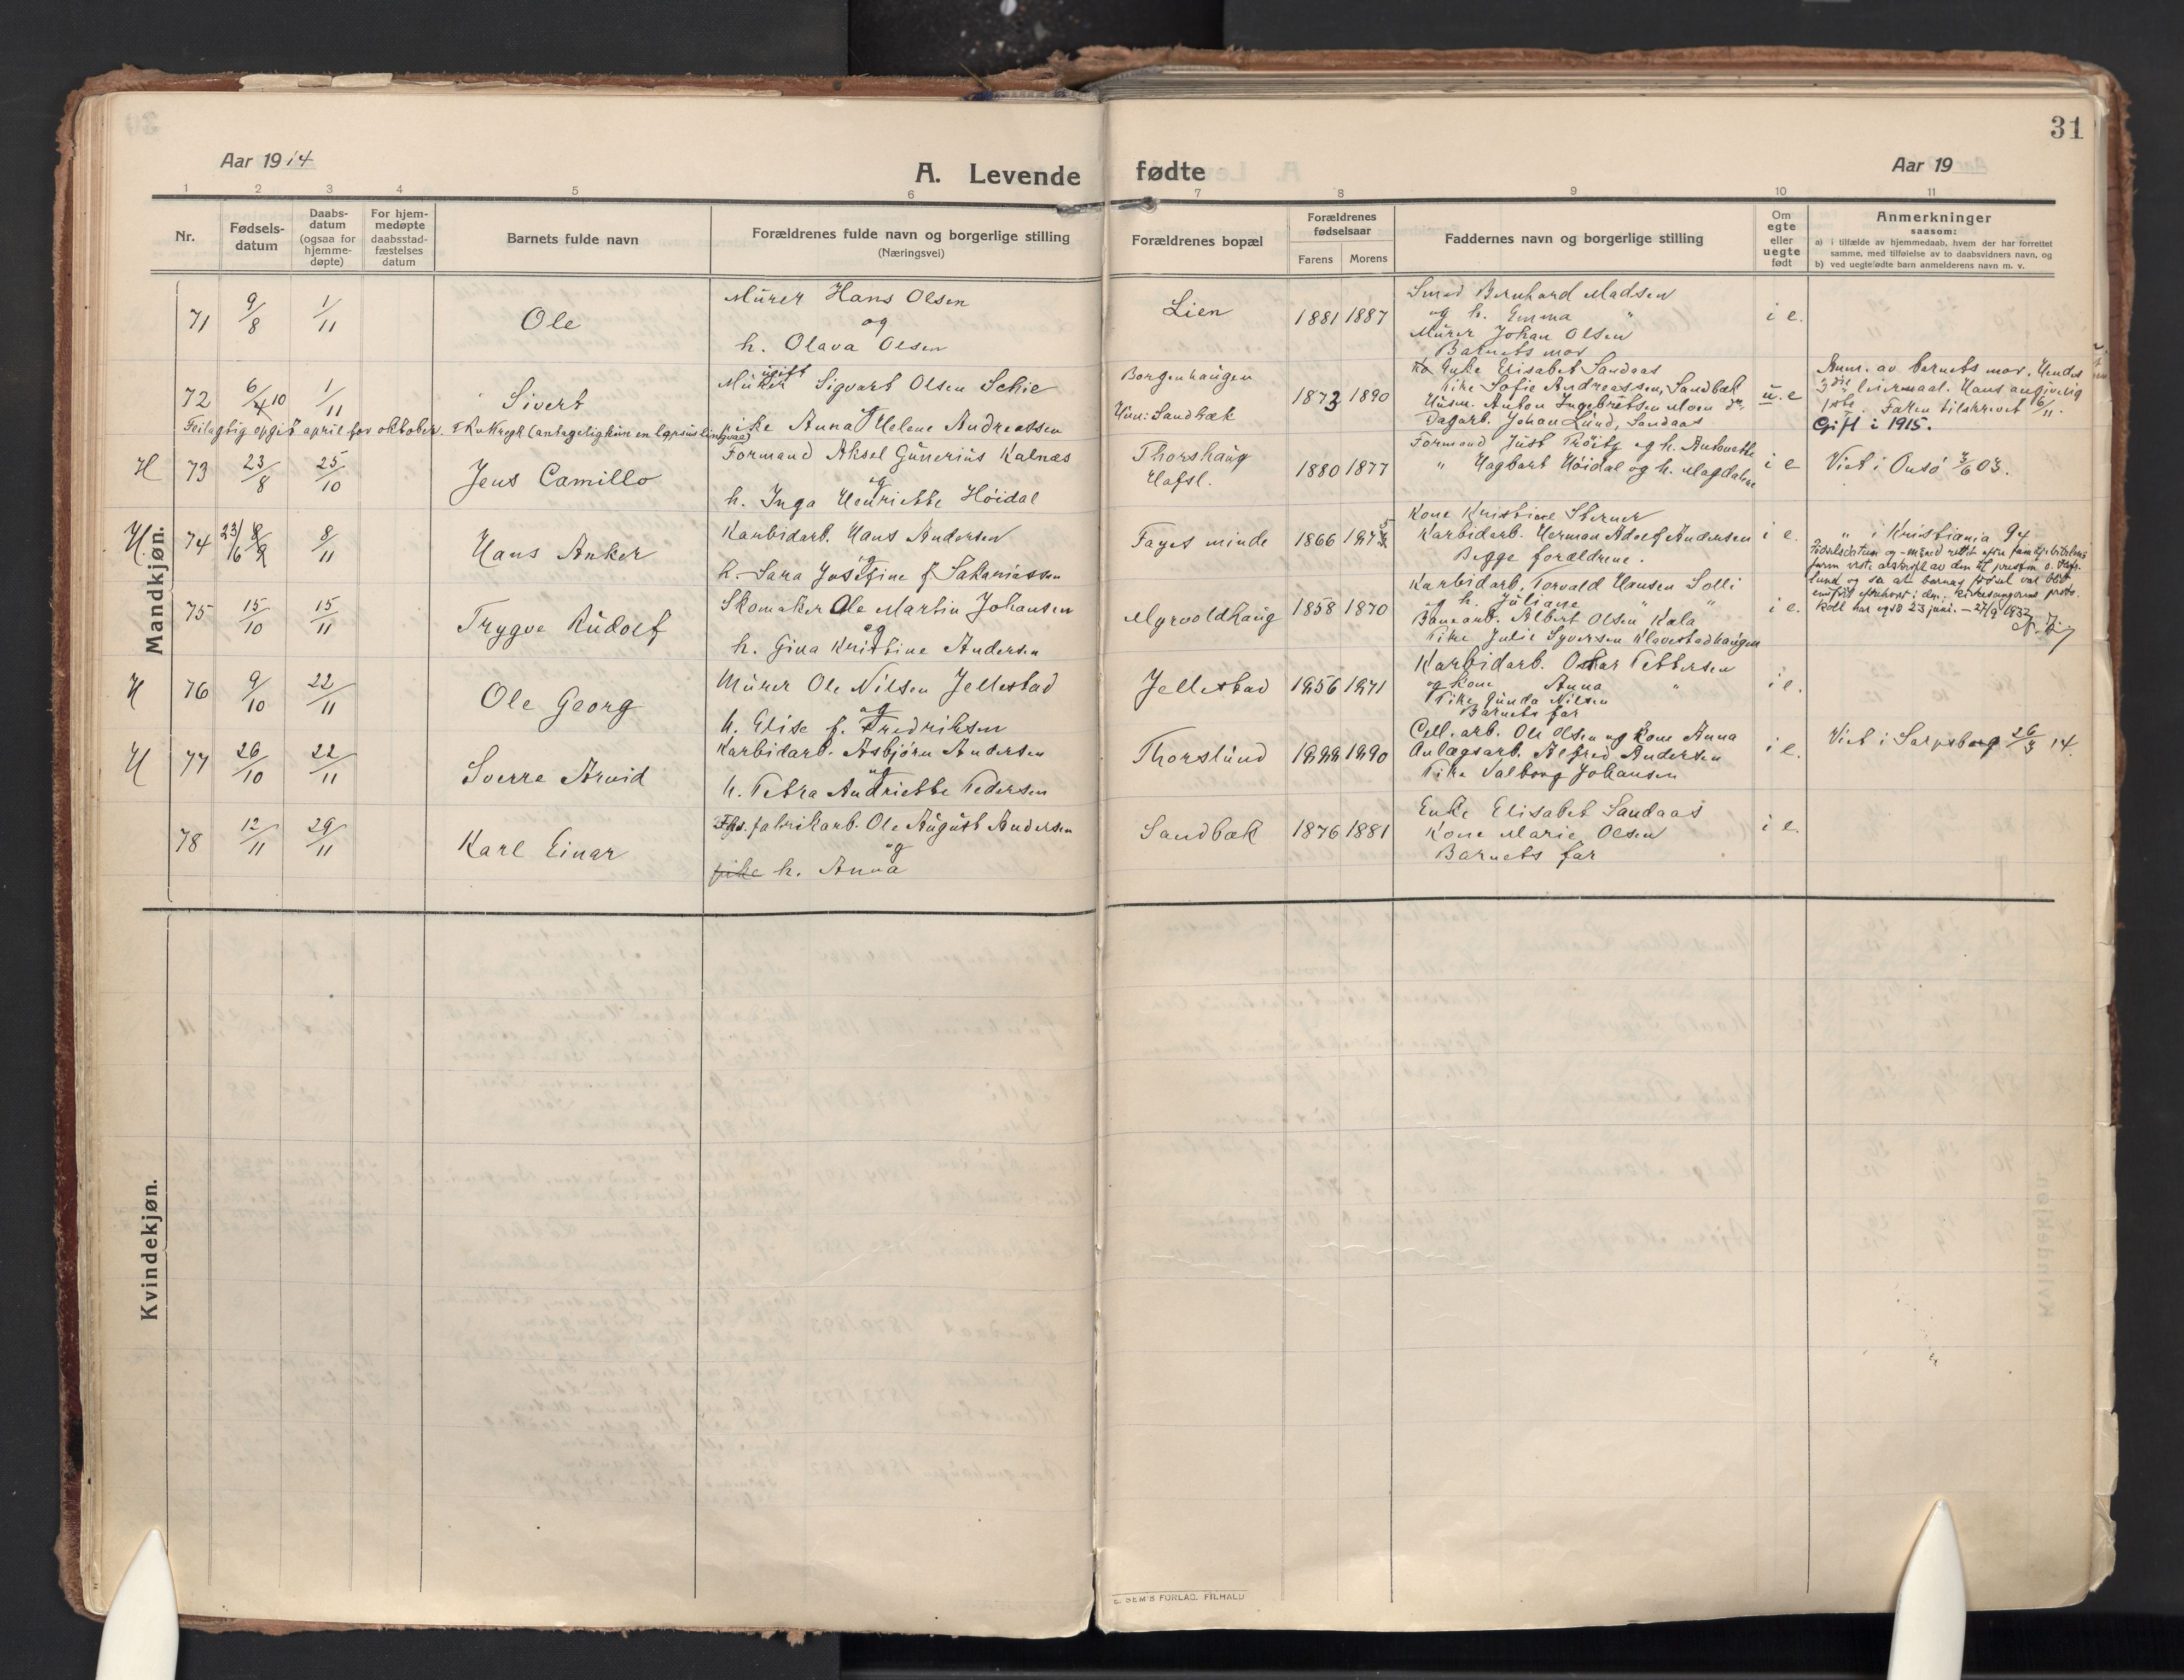 30
31
Aar 1914
A. Levende fødte
Aar 19
1 2 3 4 5 6 7 8 9 10 11
Nr.
Fødsels-
datum
Daabs-
datum
(ogsaa for
hjemme-
døpte)
For hjem-
medøpte
daabsstad-
fæstelses
datum
Barnets fulde navn
Forældrenes fulde navn og borgerlige stilling
(Næringsvei)
Forældrenes bopæl
Forældrenes
fødselsaar
Farens Morens
Faddernes navn og borgerlige stilling
Om
egte
eller
uegte
født
Anmerkninger
saasom:
a) i tilfælde av hjemmedaab, hvem der har forrettet
samme, med tilføielse av to daabsvidners navn, og
b) ved uegtefødte barn anmelderens navn m. v.
Mandkjøn.
71 9/8 1/11 Ole
Mürer Hans Olsen
og
h. Olava Olsen
Lien 1881 1887
Smed Bernhard Madsen
og h. Emma "
Mürer Johan Olsen
Barnets mor
i e.
72 6/4 10 1/11 Sivert
ugift
Mürer Sigvart Olsen Schie
pike Anna Helene Andreassen
Feilagtig opgit april for oktober. (antagelig kun en lapsus linguae)
Borgenhaugen
Hün: Sandbæk
1873 1890
Enke Elisabet Sandaas
Pike Sofie Andreassen, Sandbæk
Hüsm. Anton Ingebretsen Moen
Dagarb. Johan Lund, Sandaas
u. e
Anm. av barnets mor. Hendes
3die leiermaal. Hans angivelig
1ste. Faren tilskrevet 6/11.
Gift i 1915.
H 73 23/8 25/10 Jens Camillo
Formand Aksel Günerius Kalnæs
og
h. Inga Henriette Høidal
Thorshaüg
Hafsl.
1880 1877
Formand Just Trøitz og h. Antonette
" Hagbart Høidal og h. Magdalene
i e
Viet i Onsø 7/6 03.
H. 74 23/6 8/9 8/11 Hans Anker
Karbidarb. Hans Andersen
og
h. Sara Josefine f. Sakariassen
Fages minde 1866 1875
Kone Kristine Sterner
Karbidarb. Herman Adolf Andersen
Begge forældrene.
i e.
" i Kristiania 94
75 15/10 15/11 Trygve Rüdolf
Skomaker Ole Martin Johansen
og
h. Gina Kristine Andersen
Myrvoldhaüg 1858 1870
Karbidarb. Torvald Hansen Solli
og h. Jüliane " "
Banearb. Albert Olsen Kala
Pike Julie Syversen Klavestadhaugen
i e.
H 76 9/10 22/11 Ole Georg
Mürer Ole Nilsen Jellestad
og
h. Elise f. Fredriksen
Jellestad 1856 1871
Karbidarb. Oskar Pettersen
og kone Anna "
Pike Günda Nilsen
Barnets far
i e.
H 77 26/10 22/11 Sverre Arvid
Karbidarb. Asbjørn Andersen
og
h. Petra Andriette Pedersen
Thorslünd 1888 1890
Cell. arb. Ole Olsen og kone Anna
Anlægsarb. Alfred Andersen
Pike Valborg Johansen
i e.
Viet i Sarpsborg 26/3 14.
78 12/11 29/11 Karl Einar
fabrikarb. Ole Aügüst Andersen
og
pike h. Anna
Sandbæk 1876 1881
Enke Elisabet Sandaas
Kone Marie Olsen
Barnets far
i e.
Kvindekjøn.
E. SEM'S FORLAG. F.HALD